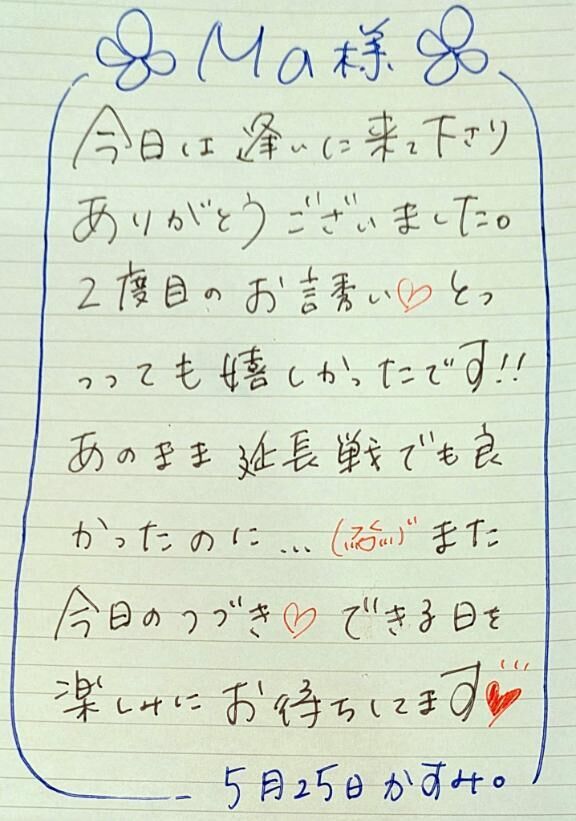 Ma様
今日は逢いに来て下さり
ありがとうございました。
2度目のお誘い♡とっ
っっても嬉しかったです!!
あのまま延長戦でも良
かったのに... また
今日のつづき♡できる日を
楽しみにお待ちしてます♥
5月25日かすみ。